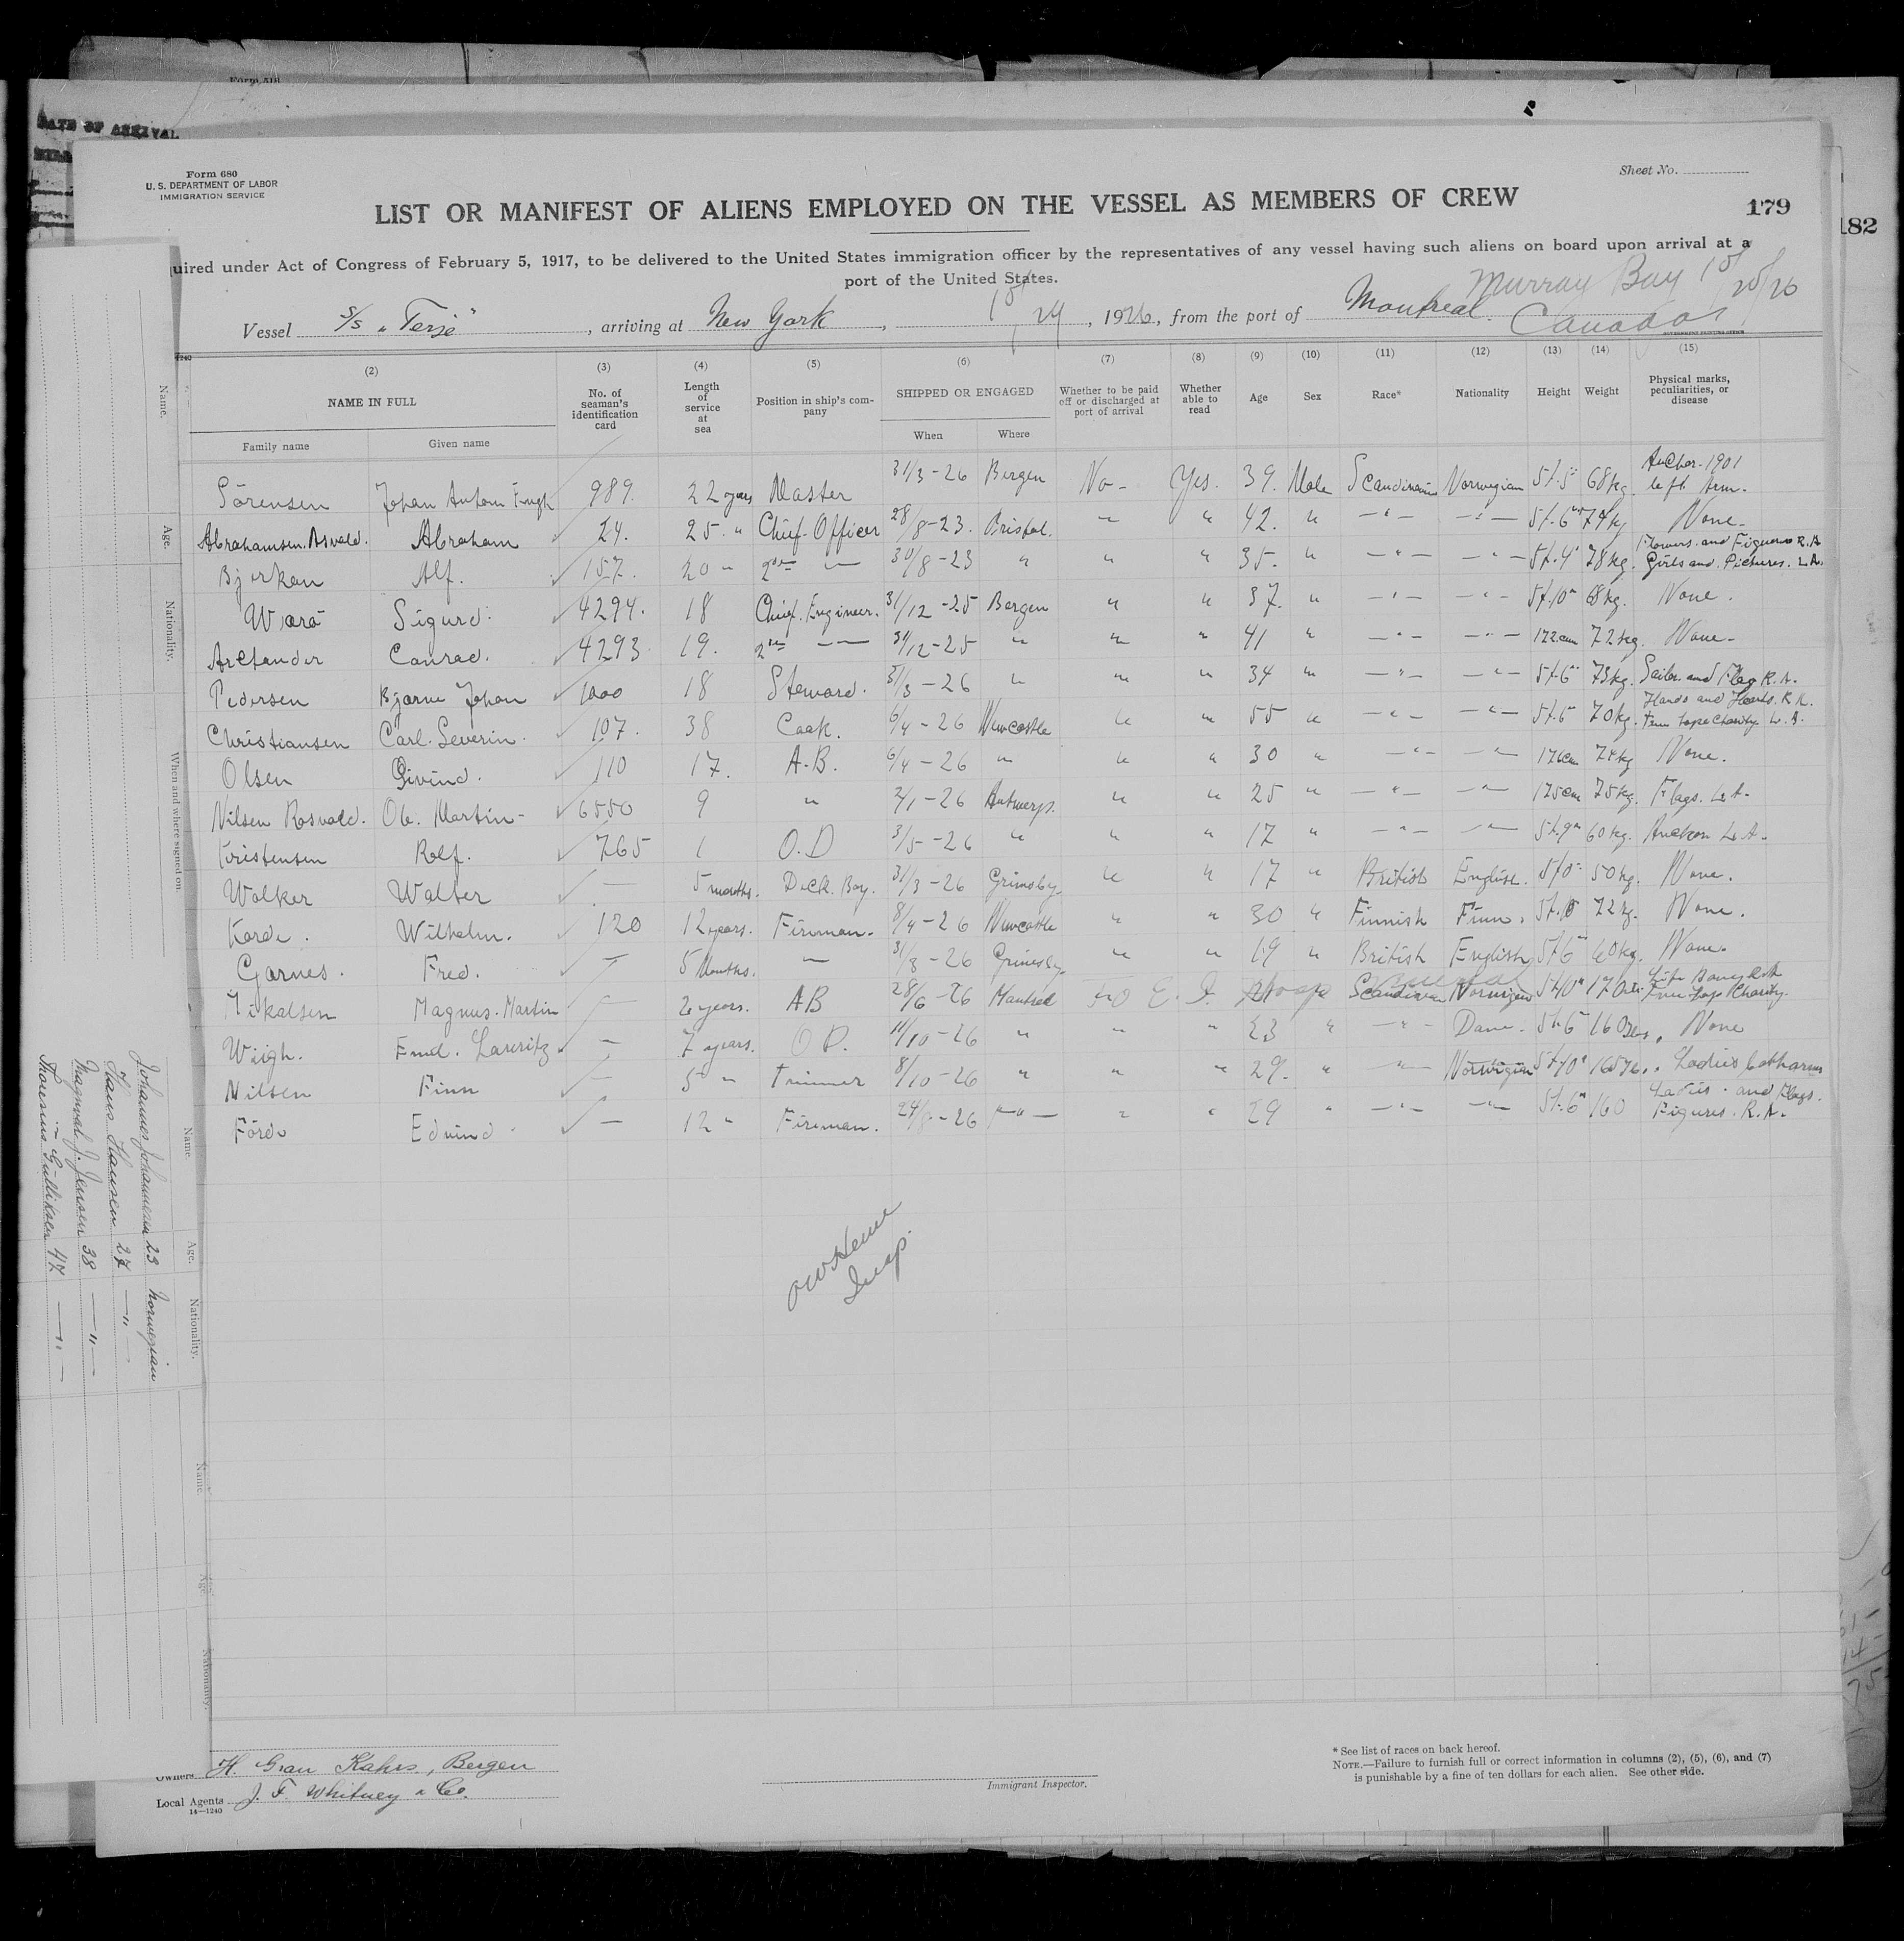 Form 518
DATE OF ARRIVAL
Form 680
U. S. DEPARTMENT OF LABOR
IMMIGRATION SERVICE
Sheet No.
LIST OR MANIFEST OF ALIENS EMPLOYED ON THE VESSEL AS MEMBERS OF CREW
179
182
uired under Act of Congress of February 5, 1917, to be delivered to the United States immigration officer by the representatives of any vessel having such aliens on board upon arrival at a
port of the United States.
Murray Bay 10/20/26
Vessel S/S "Terje", arriving at New York, 10/24, 1926, from the port of Montreal. Canada
GOVERNMENT PRINTING OFFICE
(2) (3) (4) (5) (6) (7) (8) (9) (10) (11) (12) (13) (14) (15)
NAME IN FULL No. of seaman's identification card Length of service at sea Position in ship's company SHIPPED OR ENGAGED Whether to be paid off or discharged at port of arrival Whether able to read Age Sex Race* Nationality Height Weight Physical marks, peculiarities, or disease
Family name Given name When Where
Sörensen Johan Anton 989. 22 years Master 31/3-26 Bergen No- Yes. 39. Male Scandinavian Norwegian 5f.5" 68kg. Anchor-1901 left Arm.
Abrahamsen. Asvald. Abraham 24. 25. " Chief Officer 28/8-23. Bristol. " " 42. " —"— —"— 5f.6" 74kg None-
Bjerkan Alf. 157. 20 " 2nd — 30/8-23 " " " 35. " —"— —"— 5f.4" 78kg. Flowers and Figures R.A Girls and Pictures. L.A.
Waarö Sigurd. 4294. 18 Chief. Engineer. 31/12-25 Bergen " " 37. " —"— —"— 5f.10" 68kg. None.
Conrad. 4293 19. 2nd — 31/12-25 " " " 41 " —"— —"— 172cm 72kg. None-
Pedersen Bjarne Johan 1000 18 Steward. 31/3-26 " " " 34 " —"— —"— 5f.6" 73kg. Sailor and Flag R.A.
Christiansen Carl. Severin. 107. 38 Cook. 6/4-26 Newcastle " " 55 " —"— —"— 5f.5 70kg. Hands and Hearts. R.A. Fem hope Charity L.A.
Olsen Öivind. 110 17. A.B. 6/4-26 " " " 30 " —"— —"— 176cm 74kg None.
Nilsen Rosvald. Ole. Martin- 6550 9 " 2/1-26 Antwerp. " " 25 " —"— —"— 175cm 75kg. Flags. L.A-
Kristensen Rolf. 765 1 O.D 3/5-26 " " " 17 " —"— —"— 5f.9" 60kg. Anchor L.A-
Walker Walter — 5 months. Deck. Boy. 31/3-26 Grimsby. " " 17 " British English. 5f0" 50kg. None.
Korde. Wilhelm. 120 12years. Fireman. 8/4-26 Newcastle " " 30 " Finnish Finn. 72kg. None.
Garnes. Fred. — 5 Months. — 31/3-26 Grimsby. " " 19 " British English 5f6" 60kg. None.
Mikalsen Magnus. Martin — 2 years. AB 28/6-26 Montreal 21 Scandinavian Norwegian 5f10" 170 Charity.
Wiigh. Emil. Lauritz — 7 years. O D. 11/10-26 " " " 23 " —"— Dane. 5f.6" 160 lbs. None
Nilsen Finn — 5 " Trimmer 8/10-26 " " " 29. " —"— Norwegian 5f10" 165 Ladies
Förde Edvind. — 12 " Fireman. 24/8-26 —"— " " 29 " —"— —"— 5f.6" 160 Ladies. and Flags. Figures. R.A.
Insp.
Name. Age. Nationality. When and where signed on.
Name. Age. Nationality.
Johannes Johannesen 23 Norwegian
Hans Hansen 27 —"—
Magnvald J. Jensen 38 —"—
Gulliksen 47 —"—
Name. Age. Nationality.
Owners H. Gran Kahrs, Bergen
Local Agents J. F. Whitney & Co.
14—1240
Immigrant Inspector.
* See list of races on back hereof.
NOTE.—Failure to furnish full or correct information in columns (2), (5), (6), and (7)
is punishable by a fine of ten dollars for each alien. See other side.